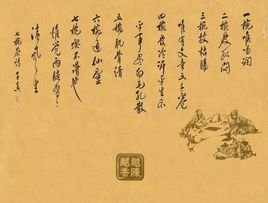 一碗喉吻润
二碗破孤闷
三碗搜枯肠
唯有文字五千卷
四碗发轻汗平生不
平事尽向毛孔散
五碗肌骨清
六碗通仙灵
七碗吃不得也
唯觉两腋习习
清风生
七碗茶诗
越陳
越香